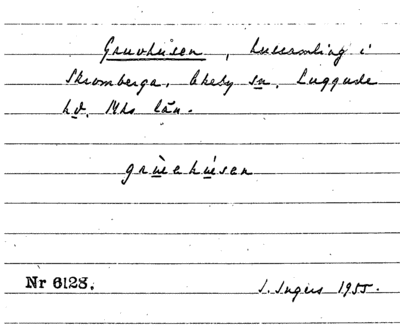 Gruvhusen, hussamling i
Skromberga, Ekeby sn, Luggude
hd. Mhs län.
gruvehusen
Nr 6128.
I. Ingers 1955.